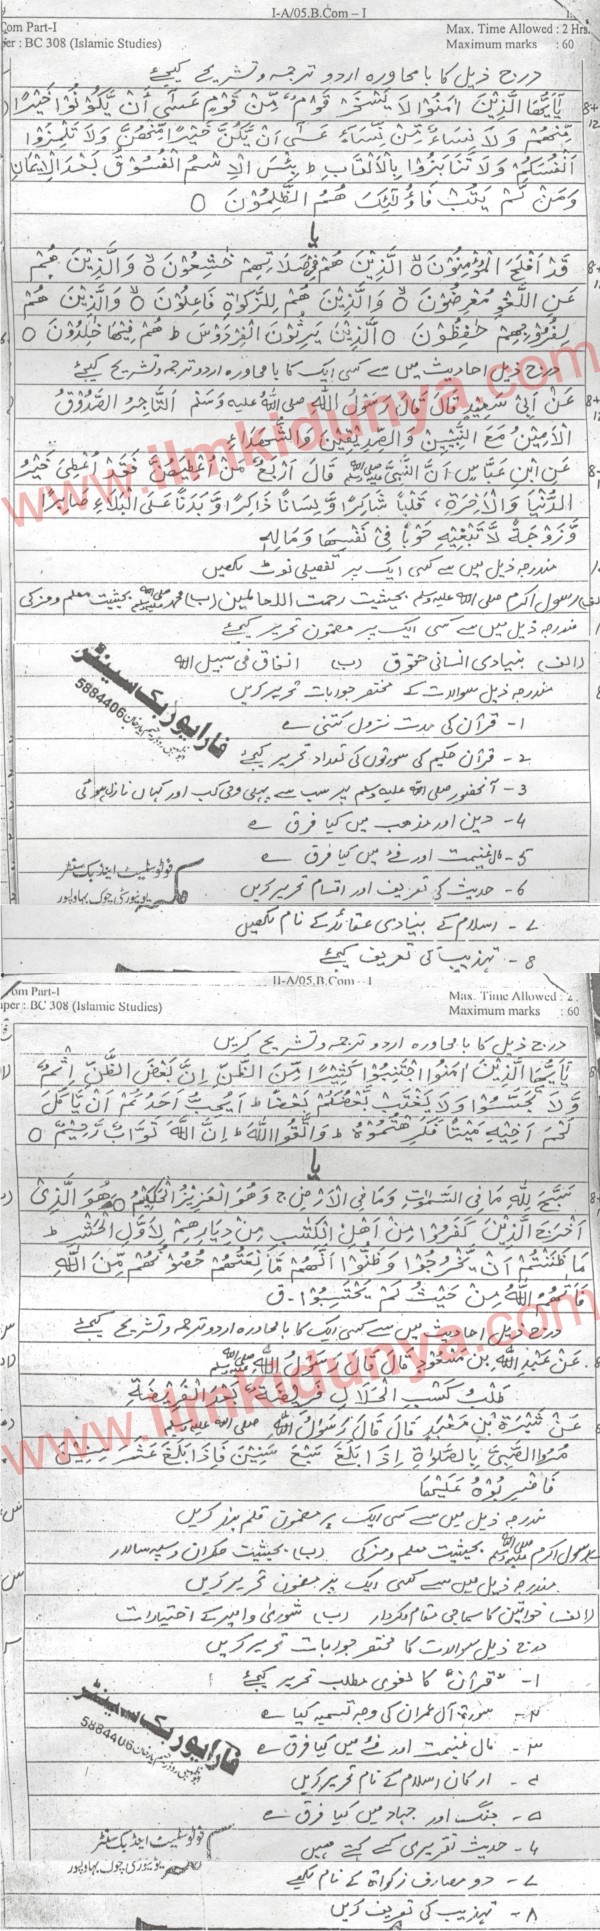 I-A/05.B.Com – I
Com Part-I
Max. Time Allowed : 2 Hrs.
per : BC 308 (Islamic Studies)
Maximum marks : 60
درج ذیل کا بامحاورہ اردو ترجمہ و تشریح کیجئے
يٰٓاَيُّهَا الَّذِيْنَ اٰمَنُوْا لَا يَسْخَرْ قَوْمٌ مِّنْ قَوْمٍ عَسٰى اَنْ يَّكُوْنُوْا خَيْرًا
مِّنْهُمْ وَلَا نِسَاۤءٌ مِّنْ نِّسَاۤءٍ عَسٰى اَنْ يَّكُنَّ خَيْرًا مِّنْهُنَّ وَلَا تَلْمِزُوْا
اَنْفُسَكُمْ وَلَا تَنَابَزُوْا بِالْاَلْقَابِ ط بِئْسَ الْاِسْمُ الْفُسُوْقُ بَعْدَ الْاِيْمَانِ
وَمَنْ لَّمْ يَتُبْ فَاُولٰۤئِكَ هُمُ الظّٰلِمُوْنَ ○
یا
قَدْ اَفْلَحَ الْمُؤْمِنُوْنَ ○ الَّذِيْنَ هُمْ فِيْ صَلَاتِهِمْ خٰشِعُوْنَ ○ وَالَّذِيْنَ هُمْ
عَنِ اللَّغْوِ مُعْرِضُوْنَ ○ وَالَّذِيْنَ هُمْ لِلزَّكٰوةِ فَاعِلُوْنَ ○ وَالَّذِيْنَ هُمْ
لِفُرُوْجِهِمْ حٰفِظُوْنَ ○ الَّذِيْنَ يَرِثُوْنَ الْفِرْدَوْسَ ط هُمْ فِيْهَا خٰلِدُوْنَ ○
درج ذیل احادیث میں سے کسی ایک کا بامحاورہ اردو ترجمہ و تشریح کیجئے
عَنْ اَبِيْ سَعِيْدٍ قَالَ قَالَ رَسُوْلُ اللهِ صلی اللہ علیہ وسلم اَلتَّاجِرُ الصَّدُوْقُ
الْاَمِيْنُ مَعَ النَّبِيّٖنَ وَالصِّدِّيْقِيْنَ وَالشُّهَدَاءِ
عَنِ ابْنِ عَبَّاسٍ اَنَّ النَّبِيَّ ﷺ قَالَ اَرْبَعٌ مَنْ اُعْطِيَهُنَّ فَقَدْ اُعْطِيَ خَيْرَ
الدُّنْيَا وَالْاٰخِرَةِ، قَلْبًا شَاكِرًا وَّلِسَانًا ذَاكِرًا وَّبَدَنًا عَلَى الْبَلَاءِ صَابِرًا
وَّزَوْجَةً لَّا تَبْغِيْهِ خَوْنًا فِيْ نَفْسِهَا وَمَالِهٖ
مندرجہ ذیل میں سے کسی ایک پر تفصیلی نوٹ لکھیں
رسول اکرم صلی اللہ علیہ وسلم بحیثیت رحمت اللعالمین (ب) محمد ﷺ بحیثیت معلم و مزکی
مندرجہ ذیل میں سے کسی ایک پر مضمون تحریر کیجئے
(الف) بنیادی انسانی حقوق (ب) انفاق فی سبیل اللہ
مندرجہ ذیل سوالات کے مختصر جوابات تحریر کریں
1- قرآن کی مدت نزول کتنی ہے
2- قرآن حکیم کی سورتوں کی تعداد تحریر کیجئے
3- آنحضور صلی اللہ علیہ وسلم پر سب سے پہلی وحی کب اور کہاں نازل ہوئی
4- دین اور مذہب میں کیا فرق ہے
5- مال غنیمت اور فئے میں کیا فرق ہے
6- حدیث کی تعریف اور اقسام تحریر کریں
7- اسلام کے بنیادی عقائد کے نام لکھیں
8- تہذیب کی تعریف کیجئے
فار ایور بک سینٹر
5884406
فوٹوسٹیٹ اینڈ بک سنٹر
یونیورسٹی چوک بہاولپور
www.ilmkidunya.com
II-A/05.B.Com – I
om Part-I
Max. Time Allowed : 2
aper : BC 308 (Islamic Studies)
Maximum marks : 60
درج ذیل کا بامحاورہ اردو ترجمہ و تشریح کریں
يٰٓاَيُّهَا الَّذِيْنَ اٰمَنُوا اجْتَنِبُوْا كَثِيْرًا مِّنَ الظَّنِّ اِنَّ بَعْضَ الظَّنِّ اِثْمٌ
وَّلَا تَجَسَّسُوْا وَلَا يَغْتَبْ بَّعْضُكُمْ بَعْضًا ط اَيُحِبُّ اَحَدُكُمْ اَنْ يَّاْكُلَ
لَحْمَ اَخِيْهِ مَيْتًا فَكَرِهْتُمُوْهُ ط وَاتَّقُوا اللهَ ط اِنَّ اللهَ تَوَّابٌ رَّحِيْمٌ ○
یا
سَبَّحَ لِلّٰهِ مَا فِي السَّمٰوٰتِ وَمَا فِي الْاَرْضِ ج وَهُوَ الْعَزِيْزُ الْحَكِيْمُ ○ هُوَ الَّذِيْ
اَخْرَجَ الَّذِيْنَ كَفَرُوْا مِنْ اَهْلِ الْكِتٰبِ مِنْ دِيَارِهِمْ لِاَوَّلِ الْحَشْرِ ط
مَا ظَنَنْتُمْ اَنْ يَّخْرُجُوْا وَظَنُّوْا اَنَّهُمْ مَّانِعَتُهُمْ حُصُوْنُهُمْ مِّنَ اللهِ
فَاَتٰهُمُ اللهُ مِنْ حَيْثُ لَمْ يَحْتَسِبُوْا ق
درج ذیل احادیث میں سے کسی ایک کا بامحاورہ اردو ترجمہ و تشریح کیجئے
عَنْ عَبْدِ اللهِ بن مَسْعُوْدٍ قَالَ قَالَ رَسُوْلُ اللهِ ﷺ
طَلَبُ كَسْبِ الْحَلَالِ فَرِيْضَةٌ بَعْدَ الْفَرِيْضَةِ
قَالَ قَالَ رَسُوْلُ اللهِ صلی اللہ علیہ وسلم
مُرُوا الصَّبِيَّ بِالصَّلٰوةِ اِذَا بَلَغَ سَبْعَ سِنِيْنَ فَاِذَا بَلَغَ عَشْرَ سِنِيْنَ
فَاضْرِبُوْهُ عَلَيْهَا
مندرجہ ذیل میں سے کسی ایک پر مضمون قلم بند کریں
رسول اکرم ﷺ بحیثیت معلم و مزکی (ب) بحیثیت حکمران و سپہ سالار
مندرجہ ذیل میں سے کسی ایک پر مضمون تحریر کریں
(الف) خواتین کا سماجی مقام و کردار (ب) شوریٰ و امیر کے اختیارات
درج ذیل سوالات کا مختصر جوابات تحریر کریں
1- "قرآن" کا لغوی مطلب تحریر کیجئے
2- سورۃ آل عمران کی وجہ تسمیہ کیا ہے
3- مال غنیمت اور فئے میں کیا فرق ہے
4- ارکان اسلام کے نام تحریر کریں
5- جنگ اور جہاد میں کیا فرق ہے
6- حدیث تقریری کسے کہتے ہیں
7- دو مصارف زکواۃ کے نام لکھئے
8- تہذیب کی تعریف کریں
فار ایور بک سینٹر
5884406
فوٹوسٹیٹ اینڈ بک سنٹر
یونیورسٹی چوک بہاولپور
www.ilmkidunya.com